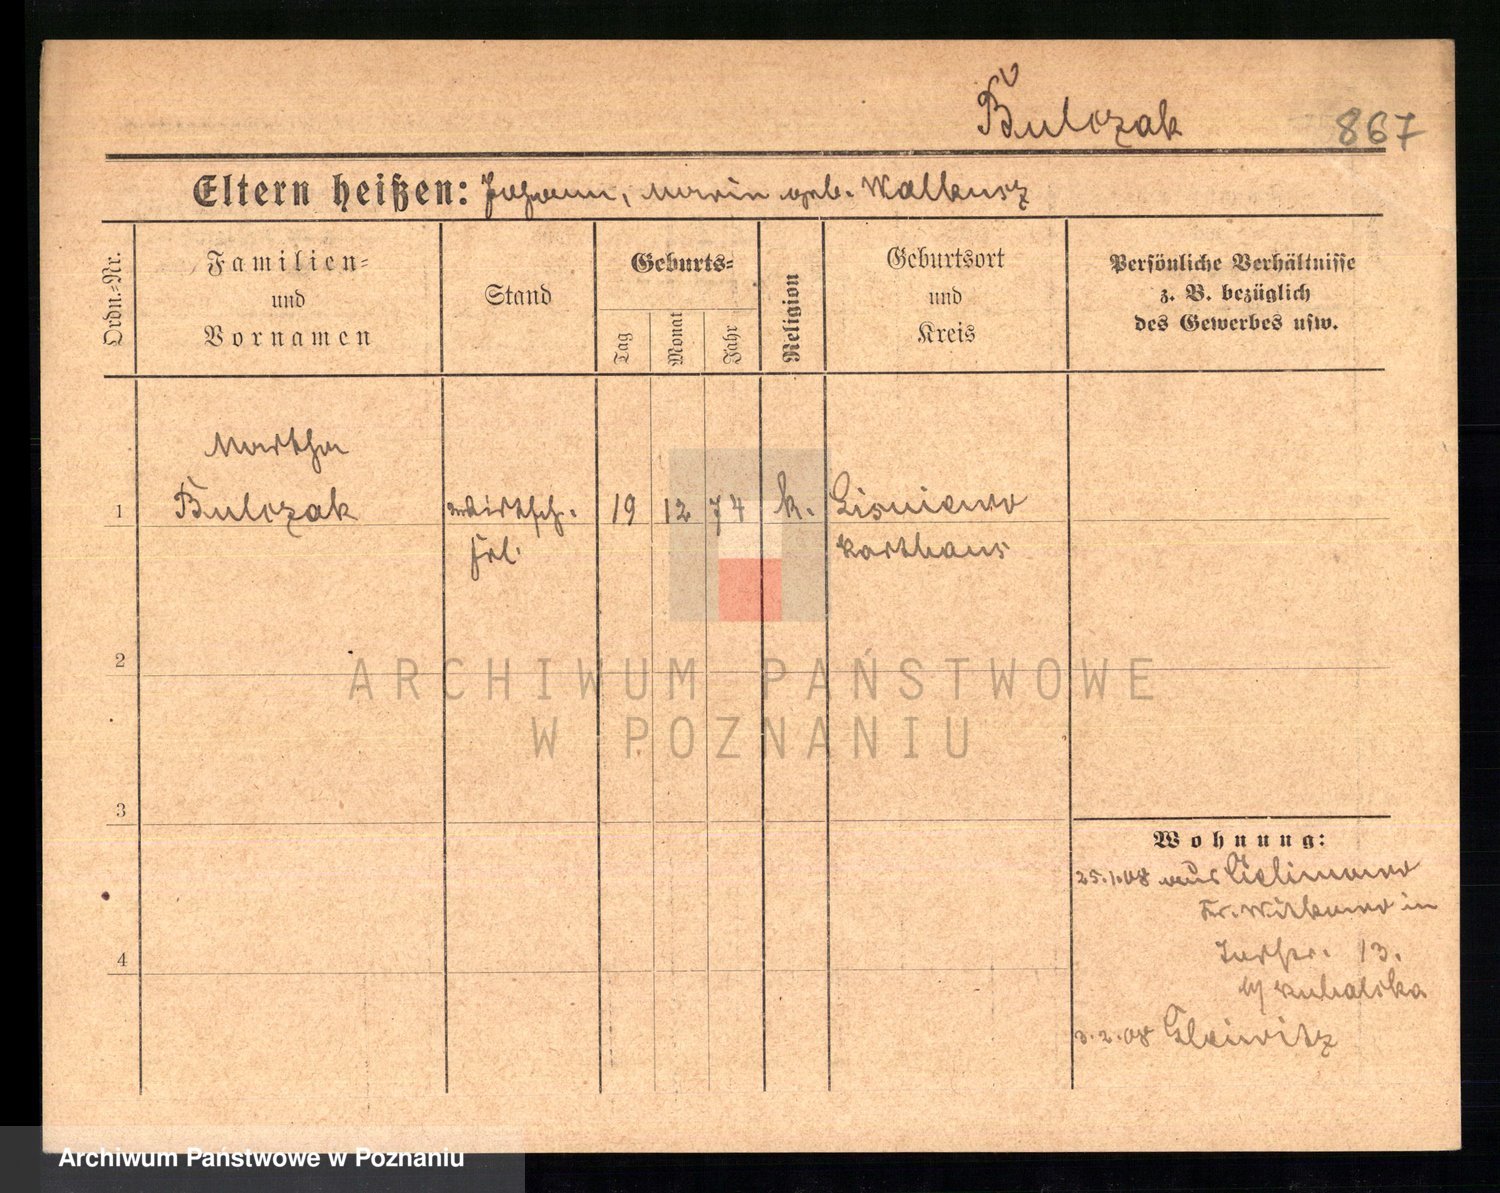 Bulczak
867
Eltern heißen: Johann, Marie geb. Walkusz
Ordn.-Nr.
Familien-
und
Vornamen
Stand
Geburts-
Tag
Monat
Jahr
Religion
Geburtsort
und
Kreis
Persönliche Verhältnisse
z. B. bezüglich
des Gewerbes usw.
Martha
1 Bulczak Wirtsch. 19 12 74 k. Lisniewo
Frl. Karthaus
2
ARCHIWUM PAŃSTWOWE
W POZNANIU
3
Wohnung:
25.1.08 aus
Kr. Witkowo in
13.
4
b/ Kubalska
3.2.08 Gleiwitz
Archiwum Państwowe w Poznaniu